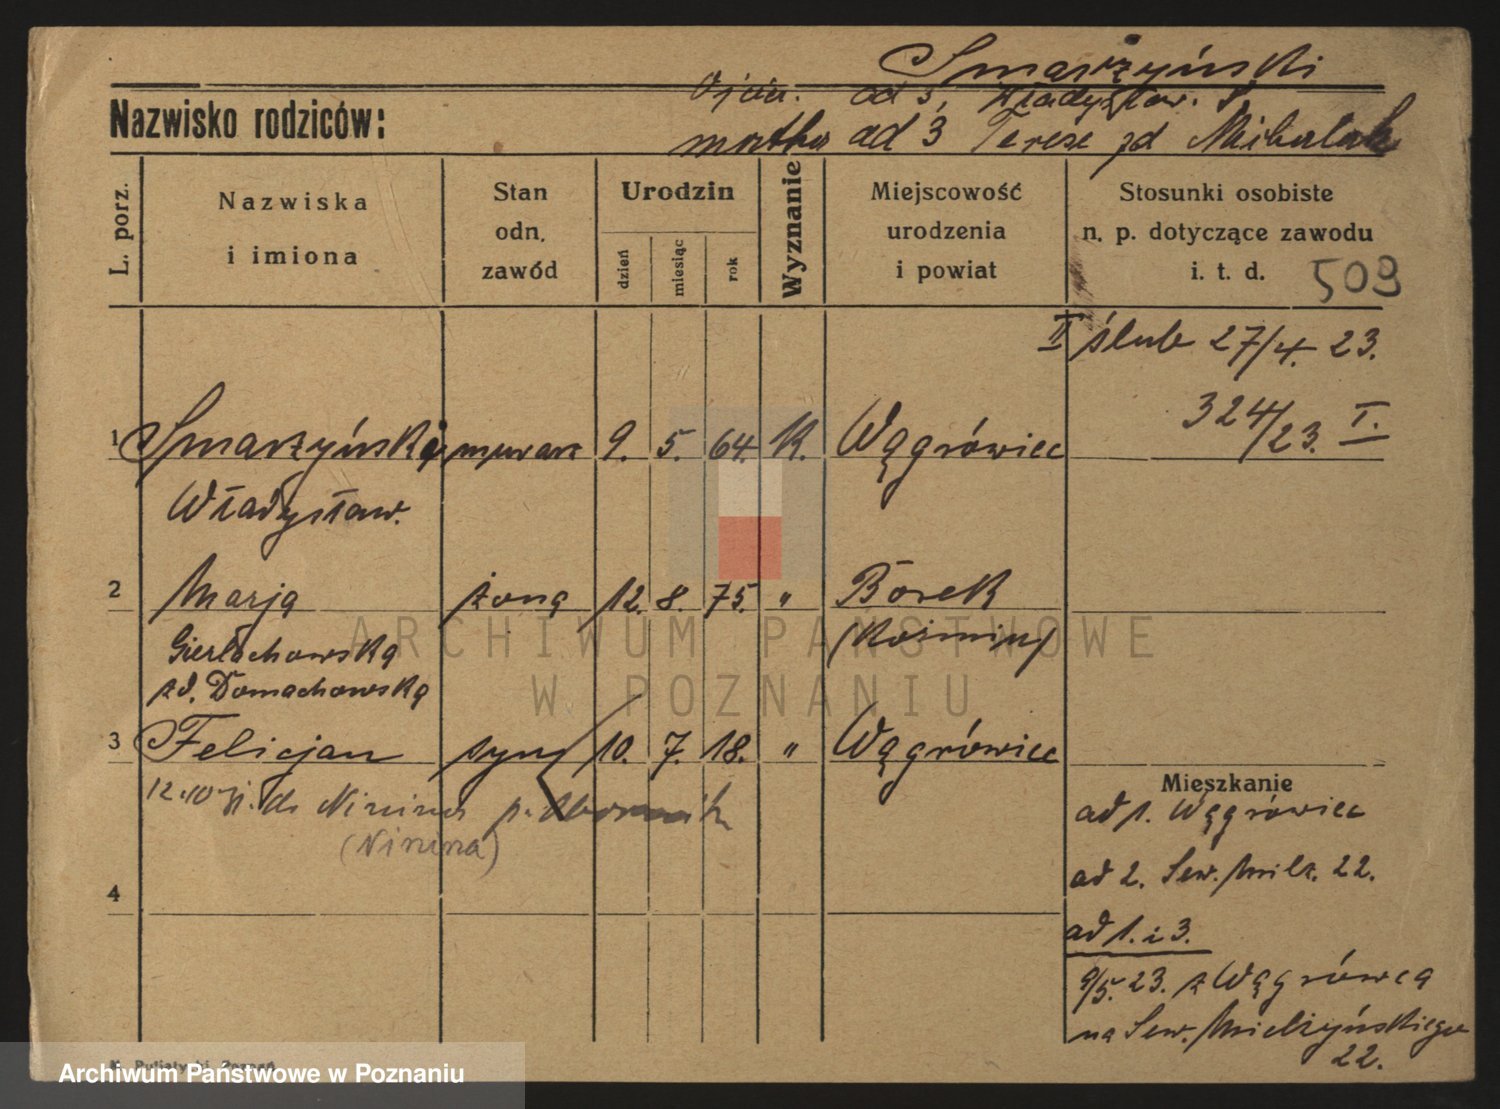 Smarzyński
Ojciec. ad 3, Władysław. S.
Nazwisko rodziców:
matka ad 3 Terese zd Michalak
L. porz.
Nazwiska
i imiona
Stan
odn.
zawód
Urodzin
dzień
miesiąc
rok
Wyznanie
Miejscowość
urodzenia
i powiat
Stosunki osobiste
n. p. dotyczące zawodu
i. t. d.
509
II ślub 27/4. 23.
324/23. I.
1 Smarzyński murarz 9. 5. 64. K. Wągrówiec
Władysław.
2 Marja żona 12. 8. 75. " Borek
(Koźmin)
Gierłachowska
zd. Domachowska
3 Felicjan syn 10. 7. 18. " Wągrówiec
12.10 do Ninino p.
(Ninina)
4
Mieszkanie
ad 1. Wągrówiec
ad 2. Sew. Mielż. 22.
ad 1. i 3.
9/5. 23. z Wągrówca
na Sew. Mielżyńskiego
22.
ARCHIWUM PAŃSTWOWE
W POZNANIU
Archiwum Państwowe w Poznaniu